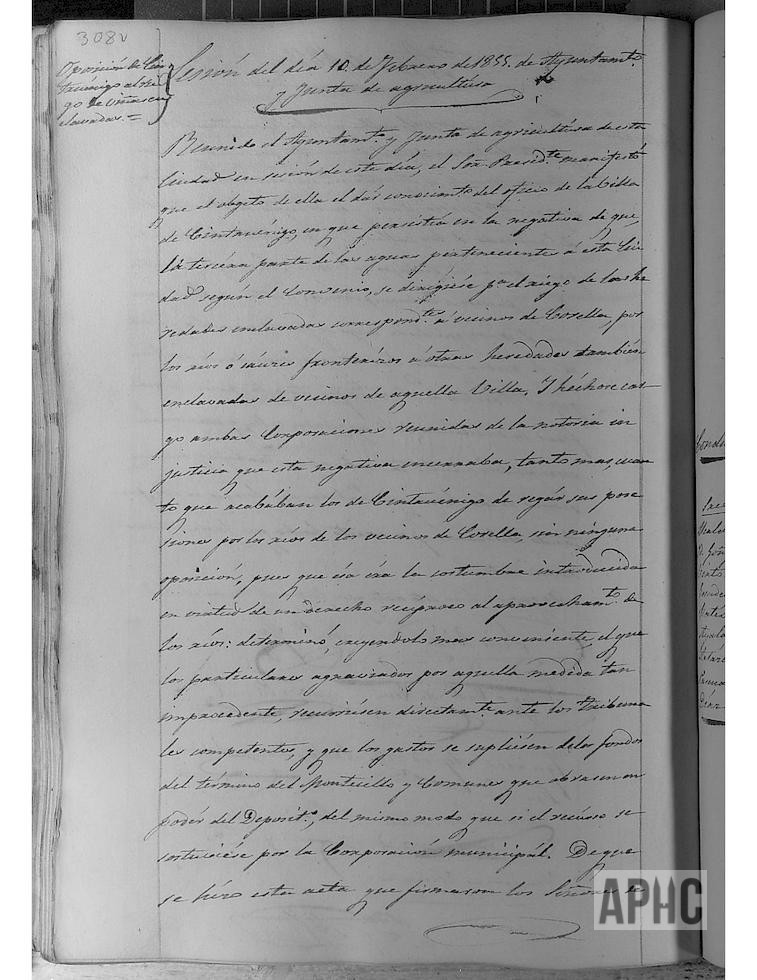 308v
Oposición de Cin-
truénigo al rie-
go de viñas en-
clavadas.=
Sesión del día 10. de Febrero de 1855. de Ayuntamto.
y Junta de agricultura
Reunido el Ayuntamto. y Junta de agricultura de esta
Ciudad en sesión de este día, el Sor. Presidte. manifestó
que el objeto de ella el dár conocimto. del oficio de la Villa
de Cintruénigo, en que persistía en la negativa de que,
la tercera parte de las aguas perteneciente á esta Ciu
dad según el Convenio, se dirigiése pa. el riego de las he
redades enclavadas correspondtes. á vecinos de Corella, por
los ríos ó cáuces fronterizos á otras heredades también
enclavadas de vecinos de aquella Villa. Y héchose car-
go ambas Corporaciones reunidas de la notoria in
justicia que esta negativa encerraba, tanto mas, cuan
to que acabában los de Cintruénigo de regár sus pose
siones por los ríos de los vecinos de Corella, sin ninguna
oposición, pues que esa éra la costumbre introducida
en virtud de un derecho recíproco al aprovechamto. de
los ríos: determinó, creyendolo mas conveniente, el que
los particulares agraviados por aquella medida tan
improcedente, recurriésen directamte. ante los Tribuna
les competentes, y que los gastos se supliésen de los fondos
del término del Montecillo y Comunes que obrasen en
podér del Deposito., del mismo modo que si el recurso se
sostuviése por la Corporación municipál. De que
se hizo esta acta que firmaron los Señores de
Condu
Ayala
APHC